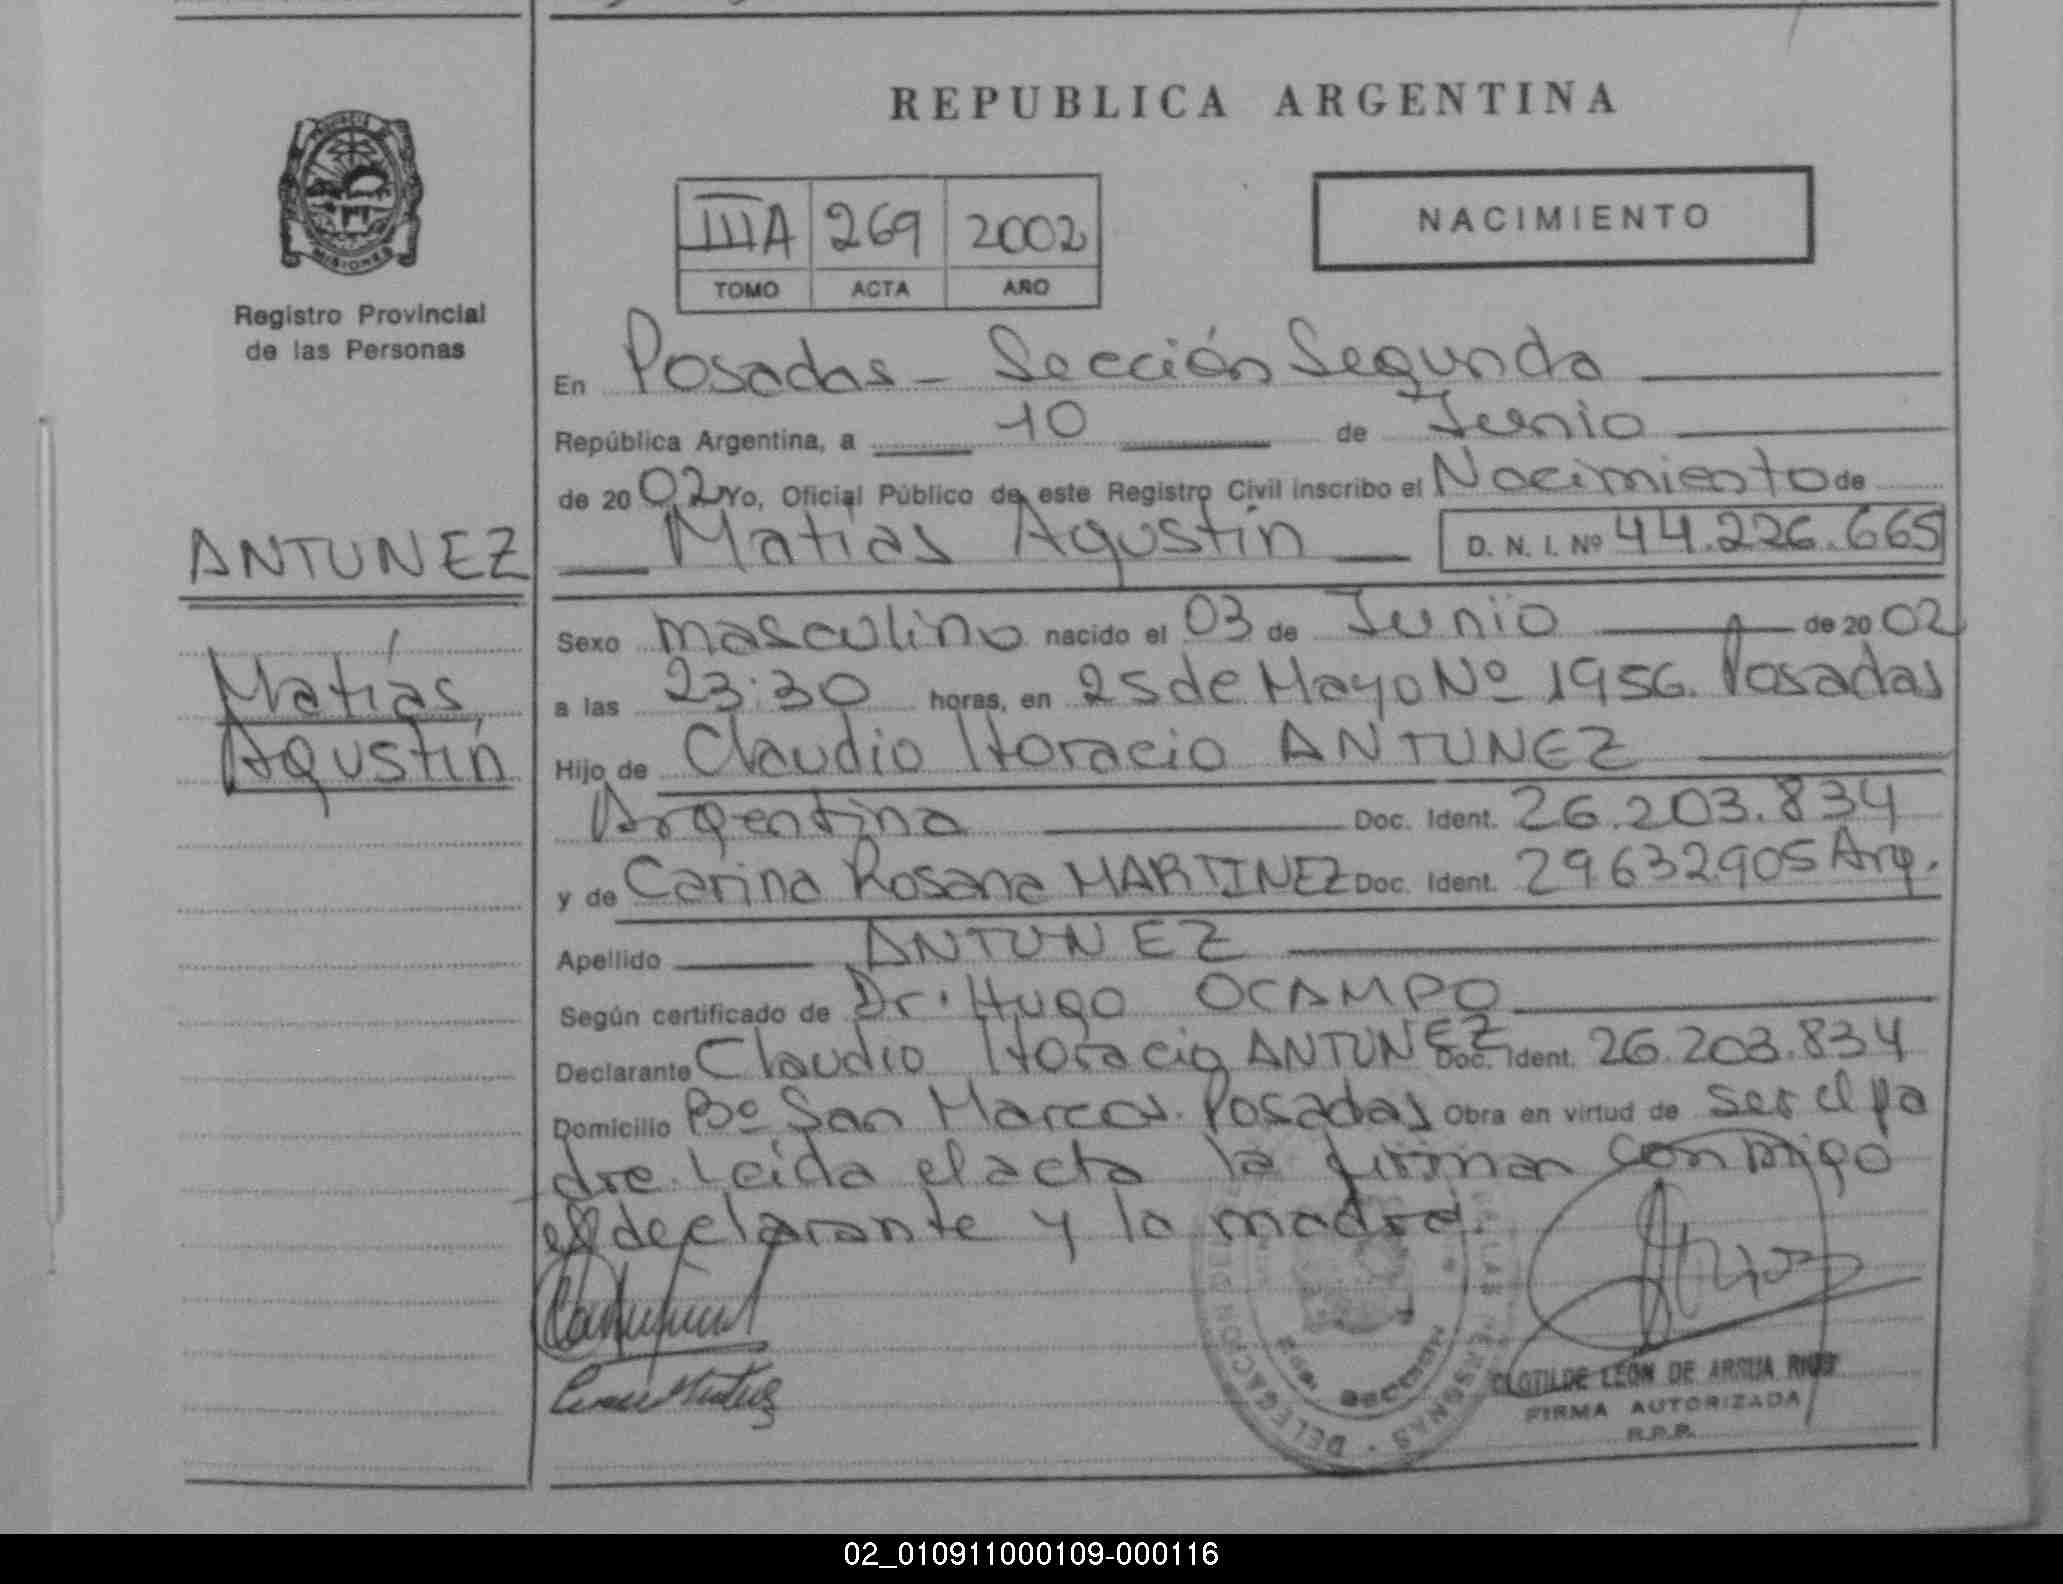 REPUBLICA ARGENTINA
PROVINCIA DE
MISIONES
Registro Provincial
de las Personas
IIIA 269 2002
TOMO ACTA AÑO
NACIMIENTO
En Posadas - Sección Segunda
República Argentina, a 10 de Junio
de 2002 Yo, Oficial Público de este Registro Civil inscribo el Nacimiento de
Matías Agustín D. N. I. Nº 44.226.665
ANTUNEZ
Matías
Agustín
Sexo masculino nacido el 03 de Junio de 2002
a las 23:30 horas, en 25 de Mayo Nº 1956. Posadas
Hijo de Claudio Horacio ANTUNEZ
Argentina Doc. Ident. 26.203.834
y de Carina Rosana MARTINEZ Doc. Ident. 29.632.905 Arg.
Apellido ANTUNEZ
Según certificado de Dr. Hugo OCAMPO
Declarante Claudio Horacio ANTUNEZ Doc. Ident. 26.203.834
Domicilio Bº San Marcos. Posadas Obra en virtud de ser el pa
dre. Leida el acta la firman conmigo
el declarante y la madre.
DELEGACION
PERSONAS
CLOTILDE LEON DE ARSUA RIOS
FIRMA AUTORIZADA
R.P.P.
02_010911000109-000116